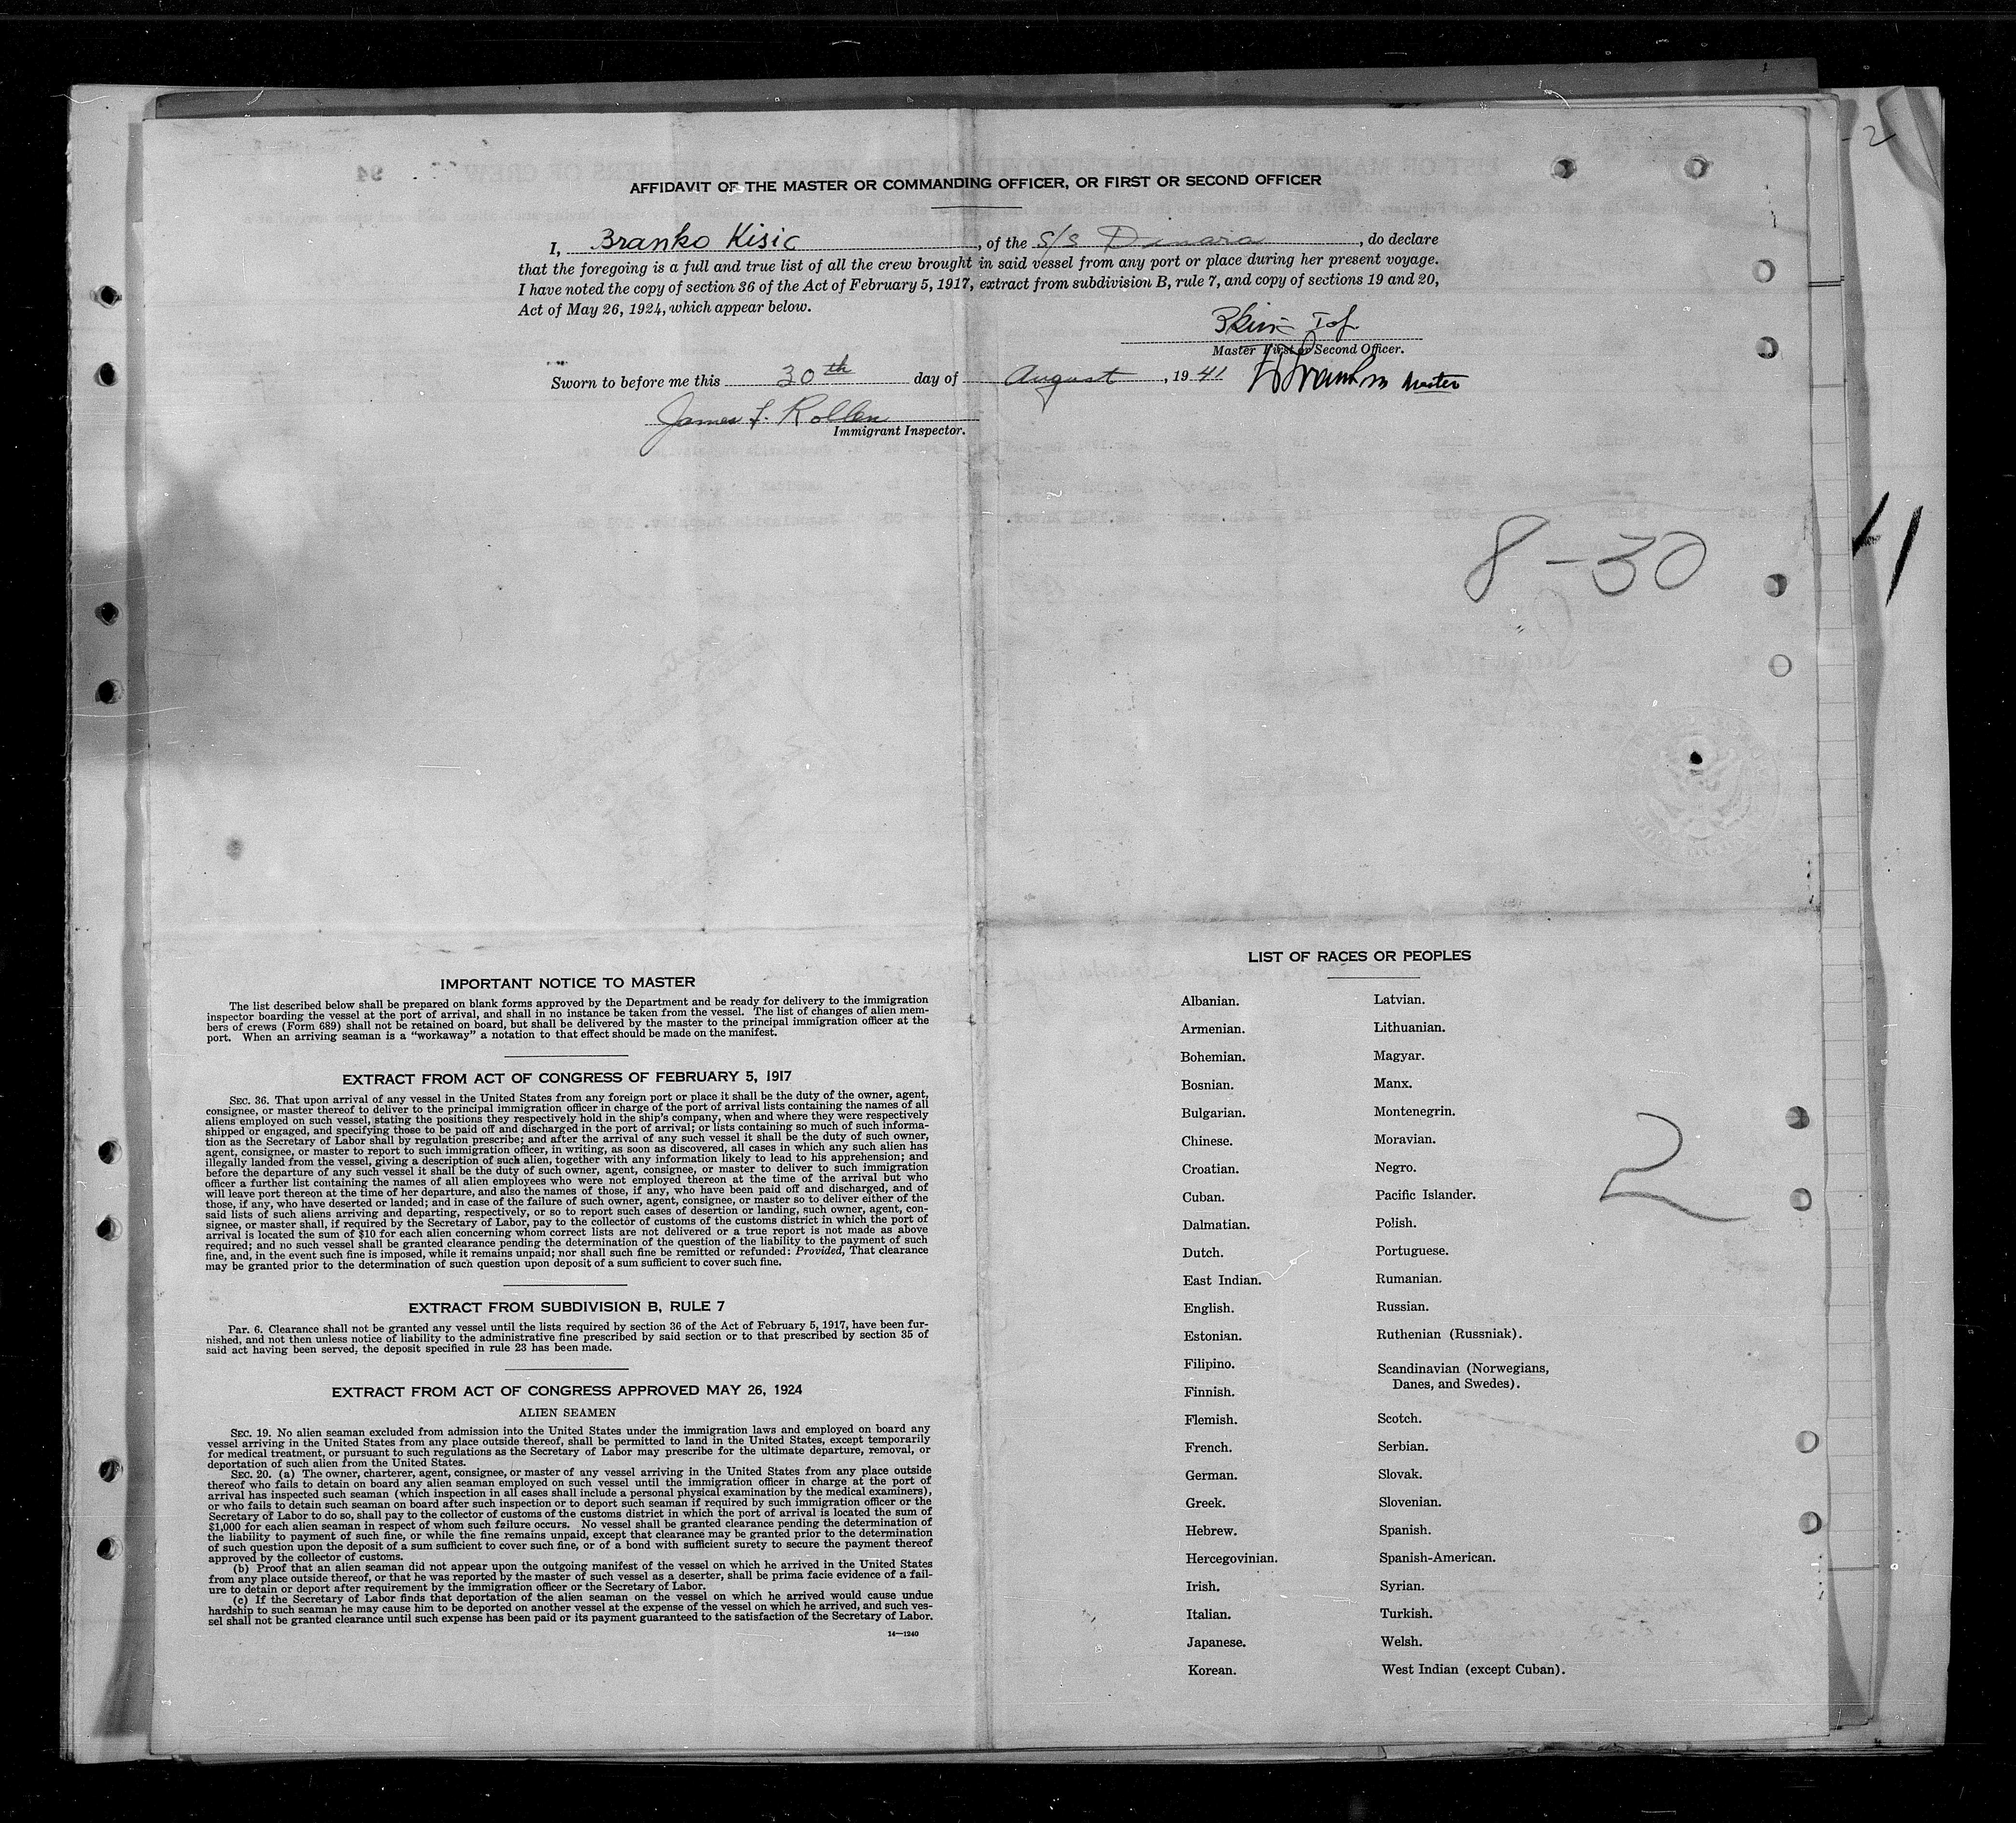 2
AFFIDAVIT OF THE MASTER OR COMMANDING OFFICER, OR FIRST OR SECOND OFFICER
I, Branko Kisic, of the S/S Dinara, do declare
that the foregoing is a full and true list of all the crew brought in said vessel from any port or place during her present voyage.
I have noted the copy of section 36 of the Act of February 5, 1917, extract from subdivision B, rule 7, and copy of sections 19 and 20,
Act of May 26, 1924, which appear below.
Master First or Second Officer.
Sworn to before me this 30th day of August, 1941 Master
James F. Rollen
Immigrant Inspector.
8-30
IMPORTANT NOTICE TO MASTER
The list described below shall be prepared on blank forms approved by the Department and be ready for delivery to the immigration
inspector boarding the vessel at the port of arrival, and shall in no instance be taken from the vessel. The list of changes of alien mem-
bers of crews (Form 689) shall not be retained on board, but shall be delivered by the master to the principal immigration officer at the
port. When an arriving seaman is a “workaway” a notation to that effect should be made on the manifest.
EXTRACT FROM ACT OF CONGRESS OF FEBRUARY 5, 1917
SEC. 36. That upon arrival of any vessel in the United States from any foreign port or place it shall be the duty of the owner, agent,
consignee, or master thereof to deliver to the principal immigration officer in charge of the port of arrival lists containing the names of all
aliens employed on such vessel, stating the positions they respectively hold in the ship's company, when and where they were respectively
shipped or engaged, and specifying those to be paid off and discharged in the port of arrival; or lists containing so much of such informa-
tion as the Secretary of Labor shall by regulation prescribe; and after the arrival of any such vessel it shall be the duty of such owner,
agent, consignee, or master to report to such immigration officer, in writing, as soon as discovered, all cases in which any such alien has
illegally landed from the vessel, giving a description of such alien, together with any information likely to lead to his apprehension; and
before the departure of any such vessel it shall be the duty of such owner, agent, consignee, or master to deliver to such immigration
officer a further list containing the names of all alien employees who were not employed thereon at the time of the arrival but who
will leave port thereon at the time of her departure, and also the names of those, if any, who have been paid off and discharged, and of
those, if any, who have deserted or landed; and in case of the failure of such owner, agent, consignee, or master so to deliver either of the
said lists of such aliens arriving and departing, respectively, or so to report such cases of desertion or landing, such owner, agent, con-
signee, or master shall, if required by the Secretary of Labor, pay to the collector of customs of the customs district in which the port of
arrival is located the sum of $10 for each alien concerning whom correct lists are not delivered or a true report is not made as above
required; and no such vessel shall be granted clearance pending the determination of the question of the liability to the payment of such
fine, and, in the event such fine is imposed, while it remains unpaid; nor shall such fine be remitted or refunded: Provided, That clearance
may be granted prior to the determination of such question upon deposit of a sum sufficient to cover such fine.
EXTRACT FROM SUBDIVISION B, RULE 7
PAR. 6. Clearance shall not be granted any vessel until the lists required by section 36 of the Act of February 5, 1917, have been fur-
nished, and not then unless notice of liability to the administrative fine prescribed by said section or to that prescribed by section 35 of
said act having been served, the deposit specified in rule 23 has been made.
EXTRACT FROM ACT OF CONGRESS APPROVED MAY 26, 1924
ALIEN SEAMEN
SEC. 19. No alien seaman excluded from admission into the United States under the immigration laws and employed on board any
vessel arriving in the United States from any place outside thereof, shall be permitted to land in the United States, except temporarily
for medical treatment, or pursuant to such regulations as the Secretary of Labor may prescribe for the ultimate departure, removal, or
deportation of such alien from the United States.
SEC. 20. (a) The owner, charterer, agent, consignee, or master of any vessel arriving in the United States from any place outside
thereof who fails to detain on board any alien seaman employed on such vessel until the immigration officer in charge at the port of
arrival has inspected such seaman (which inspection in all cases shall include a personal physical examination by the medical examiners),
or who fails to detain such seaman on board after such inspection or to deport such seaman if required by such immigration officer or the
Secretary of Labor to do so, shall pay to the collector of customs of the customs district in which the port of arrival is located the sum of
$1,000 for each alien seaman in respect of whom such failure occurs. No vessel shall be granted clearance pending the determination of
the liability to payment of such fine, or while the fine remains unpaid, except that clearance may be granted prior to the determination
of such question upon the deposit of a sum sufficient to cover such fine, or of a bond with sufficient surety to secure the payment thereof
approved by the collector of customs.
(b) Proof that an alien seaman did not appear upon the outgoing manifest of the vessel on which he arrived in the United States
from any place outside thereof, or that he was reported by the master of such vessel as a deserter, shall be prima facie evidence of a fail-
ure to detain or deport after requirement by the immigration officer or the Secretary of Labor.
(c) If the Secretary of Labor finds that deportation of the alien seaman on the vessel on which he arrived would cause undue
hardship to such seaman he may cause him to be deported on another vessel at the expense of the vessel on which he arrived, and such ves-
sel shall not be granted clearance until such expense has been paid or its payment guaranteed to the satisfaction of the Secretary of Labor.
14—1240
LIST OF RACES OR PEOPLES
Albanian.
Armenian.
Bohemian.
Bosnian.
Bulgarian.
Chinese.
Croatian.
Cuban.
Dalmatian.
Dutch.
East Indian.
English.
Estonian.
Filipino.
Finnish.
Flemish.
French.
German.
Greek.
Hebrew.
Hercegovinian.
Irish.
Italian.
Japanese.
Korean.
Latvian.
Lithuanian.
Magyar.
Manx.
Montenegrin.
Moravian.
Negro.
Pacific Islander.
Polish.
Portuguese.
Rumanian.
Russian.
Ruthenian (Russniak).
Scandinavian (Norwegians,
Danes, and Swedes).
Scotch.
Serbian.
Slovak.
Slovenian.
Spanish.
Spanish-American.
Syrian.
Turkish.
Welsh.
West Indian (except Cuban).
2